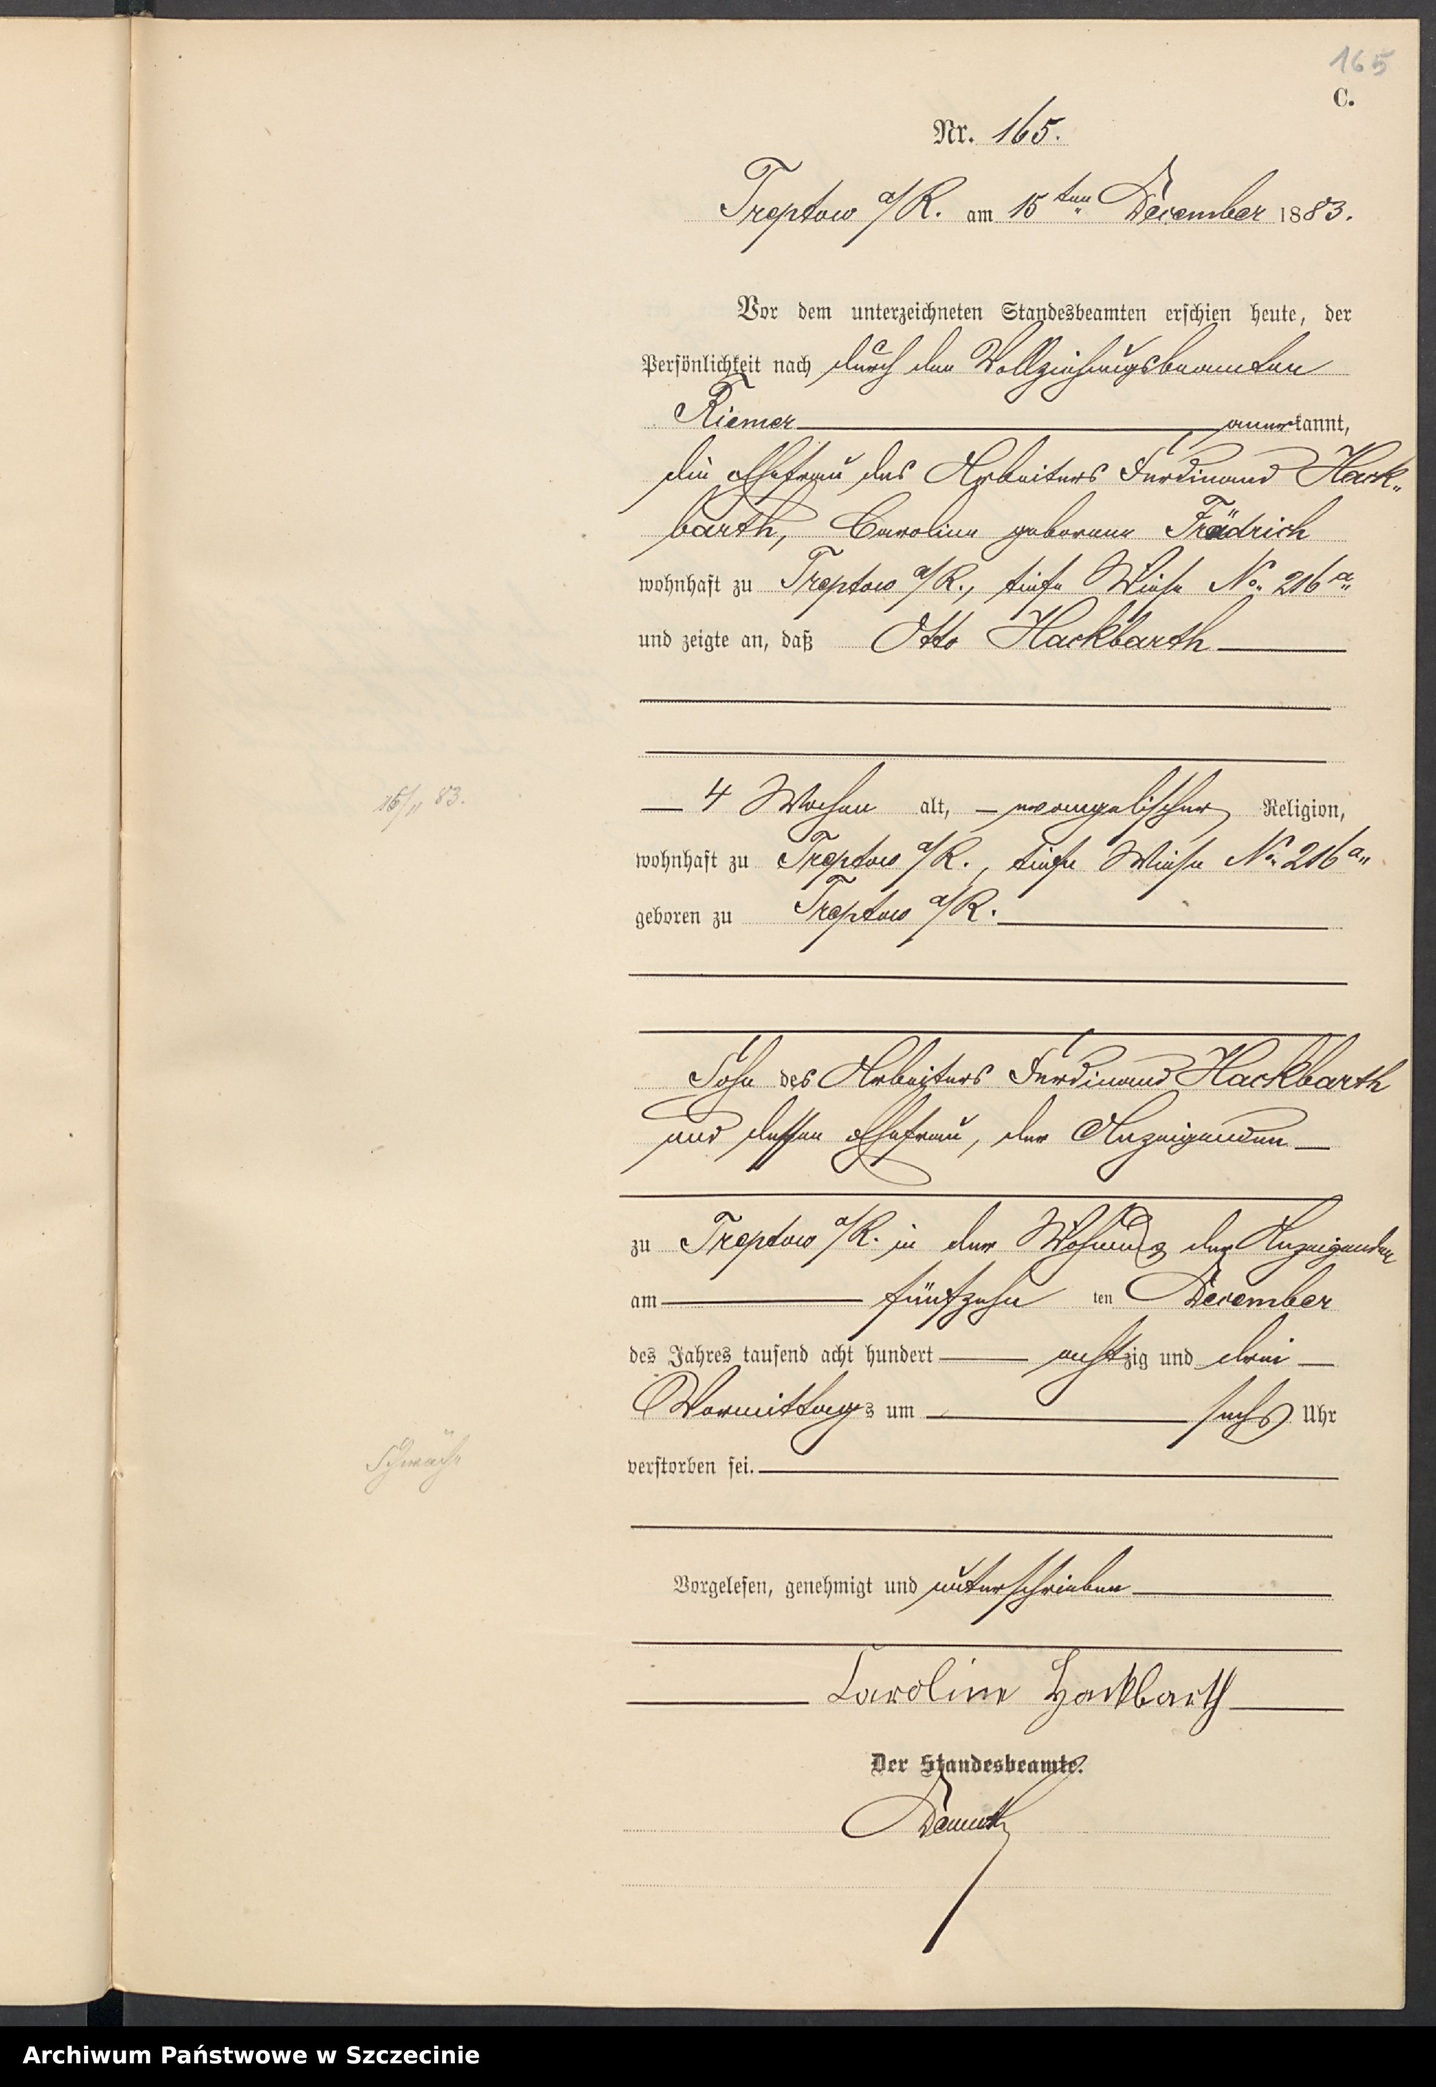 165
C.
Nr. 165.
Treptow a/R. am 15ten December 1883.
Vor dem unterzeichneten Standesbeamten erschien heute, der
Persönlichkeit nach durch den Vollziehungsbeamten
Riemer anerkannt,
die Ehefrau des Arbeiters Ferdinand Hack-
barth, Caroline geborene Frädrich
wohnhaft zu Treptow a/R., tiefe Wiese No. 216a
und zeigte an, daß Otto Hackbarth
15/11 83.
4 Wochen alt, evangelischer Religion,
wohnhaft zu Treptow a/R., tiefe Wiese No. 216a
geboren zu Treptow a/R.
Sohn des Arbeiters Ferdinand Hackbarth
und dessen Ehefrau, der Anzeigenden
zu Treptow a/R. in der Wohnung der Anzeigenden
am fünfzehn ten December
des Jahres tausend acht hundert achtzig und drei
Vormittags um sechs Uhr
Schwäche
verstorben sei.
Vorgelesen, genehmigt und unterschrieben
Caroline Hackbarth
Der Standesbeamte.
Demuth
Archiwum Państwowe w Szczecinie